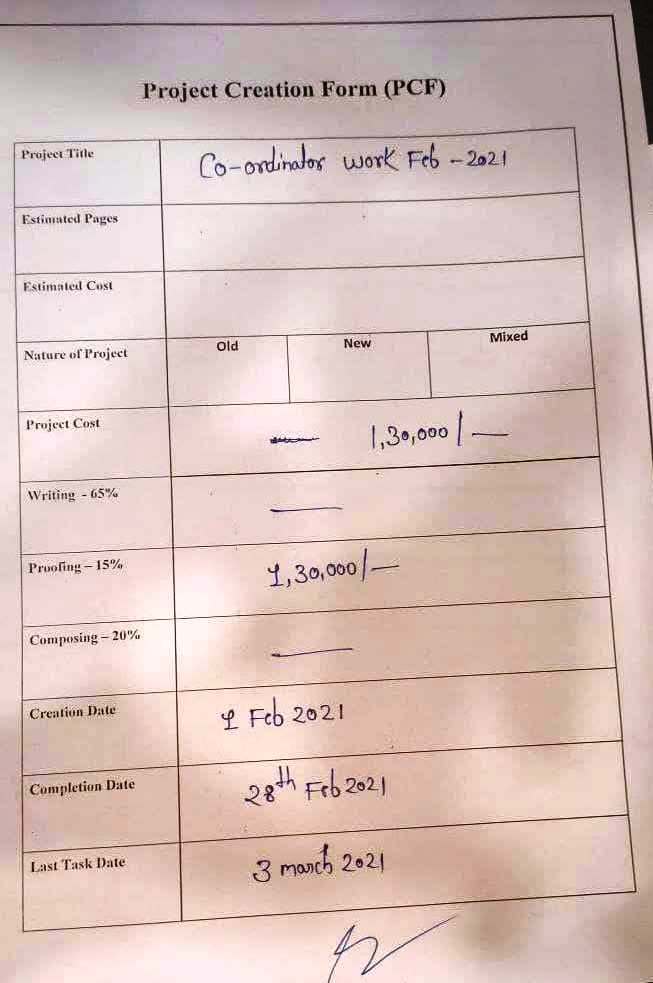 Project Creation Form (PCF)
Project Title Co-ordinator work Feb - 2021
Estimated Pages
Estimated Cost
Nature of Project Old New Mixed
Project Cost — 1,30,000/—
Writing - 65% —
Proofing – 15% 1,30,000/—
Composing – 20% —
Creation Date 1 Feb 2021
Completion Date 28th Feb 2021
Last Task Date 3 march 2021